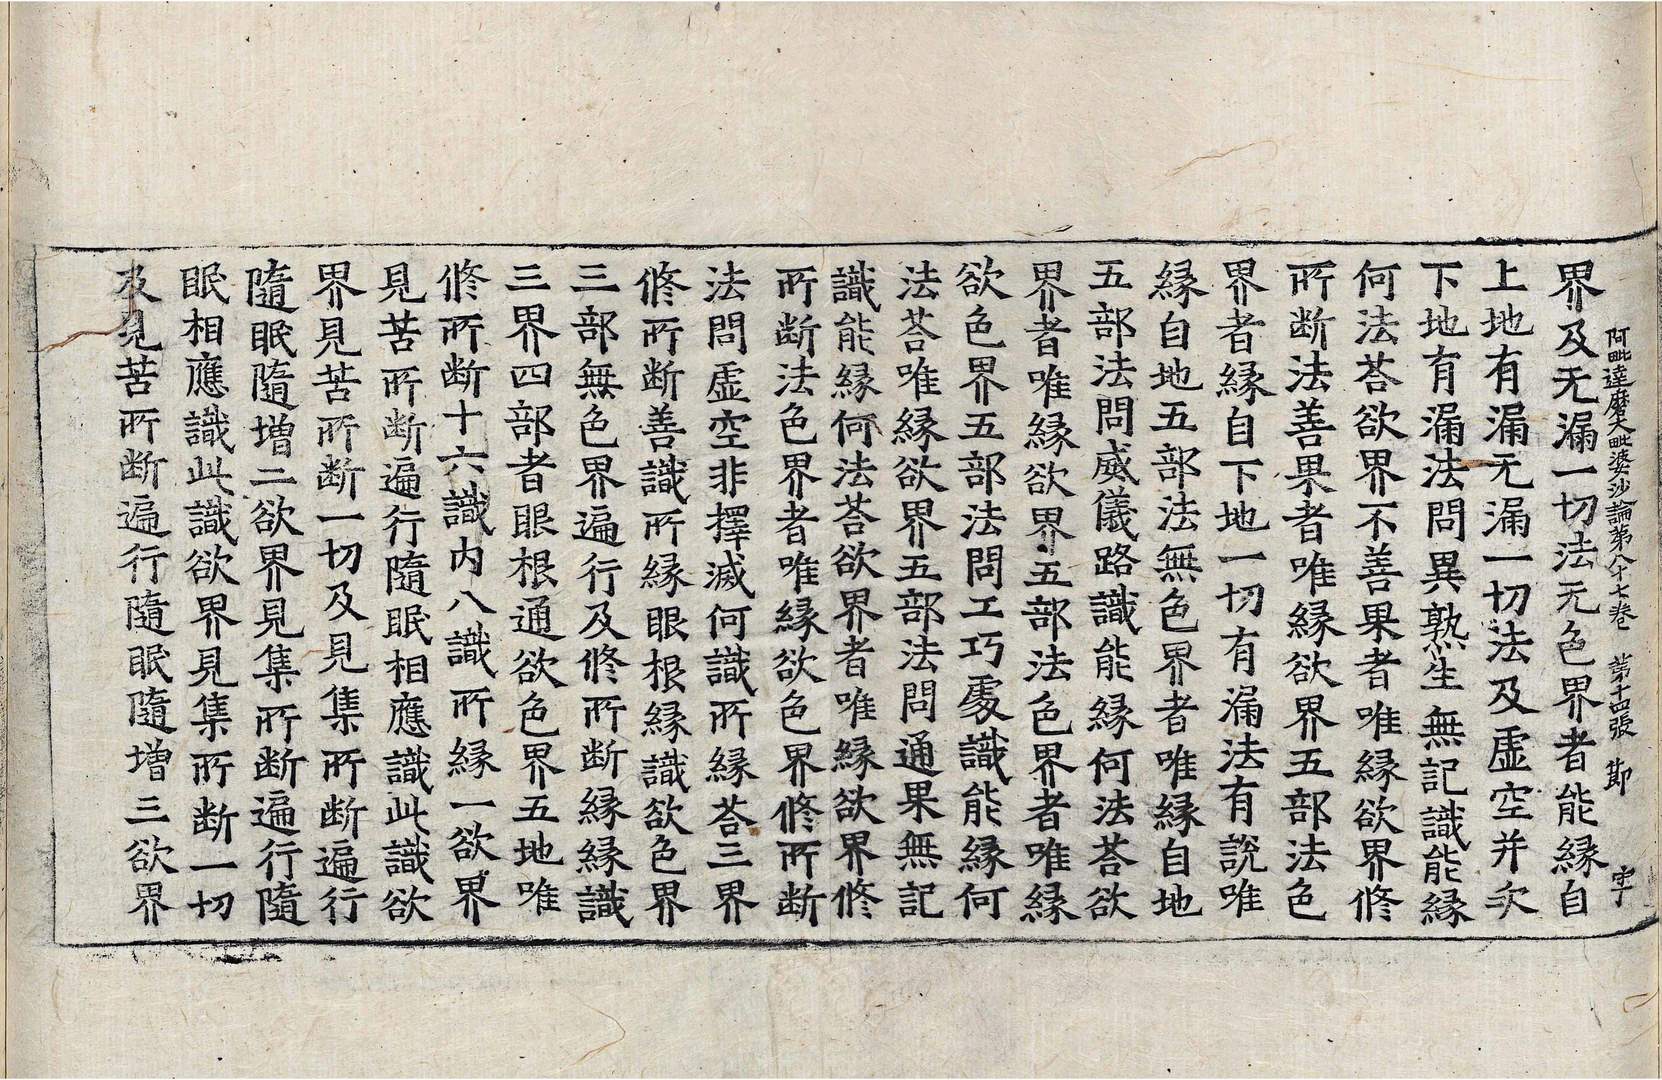 阿毗達磨大毗婆沙論第八十七卷　第十四張　節　字
界及无漏一切法无色界者能緣自
上地有漏无漏一切法及虛空并欻
下地有漏法問異熟生無記識能緣
何法荅欲界不善果者唯緣欲界修
所斷法善果者唯緣欲界五部法色
界者緣自下地一切有漏法有說唯
緣自地五部法無色界者唯緣自地
五部法問威儀路識能緣何法荅欲
界者唯緣欲界五部法色界者唯緣
欲色界五部法問工巧處識能緣何
法荅唯緣欲界五部法問通果無記
識能緣何法荅欲界者唯緣欲界修
所斷法色界者唯緣欲色界修所斷
法問虛空非擇滅何識所緣荅三界
修所斷善識所緣眼根緣識欲色界
三部無色界遍行及修所斷緣緣識
三界四部者眼根通欲色界五地唯
修所斷十六識內八識所緣一欲界
見苦所斷遍行隨眠相應識此識欲
界見苦所斷一切及見集所斷遍行
隨眠隨增二欲界見集所斷遍行隨
眠相應識此識欲界見集所斷一切
及見苦所斷遍行隨眠隨增三欲界